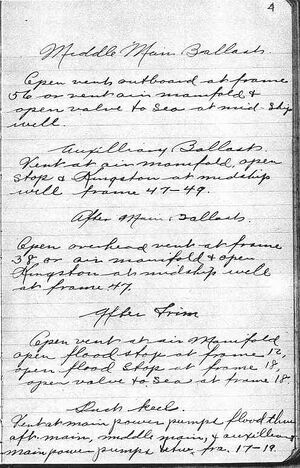 4
Middle Main Ballasts.
Open vents outboard at frame
56 or vent air manifold &
open valve to Sea at mid-Ship
well.
Auxilliary Ballasts.
Vent at air manifold, open
Stop & Kingston at midship
well frame 47-49.
After Main Ballasts.
Open overhead vent at frame
38 or air manifold & open
Kingston at midship well
at frame 47.
After Trim
Open vent at air Manifold
open flood stop at frame 12,
open flood Stop at frame 18,
open valve to Sea at frame 18.
Duck keel.
Vent at main power pumps flood thru
aft. main, middle main, & auxilliary
main power pumps btw. fra. 17-19.